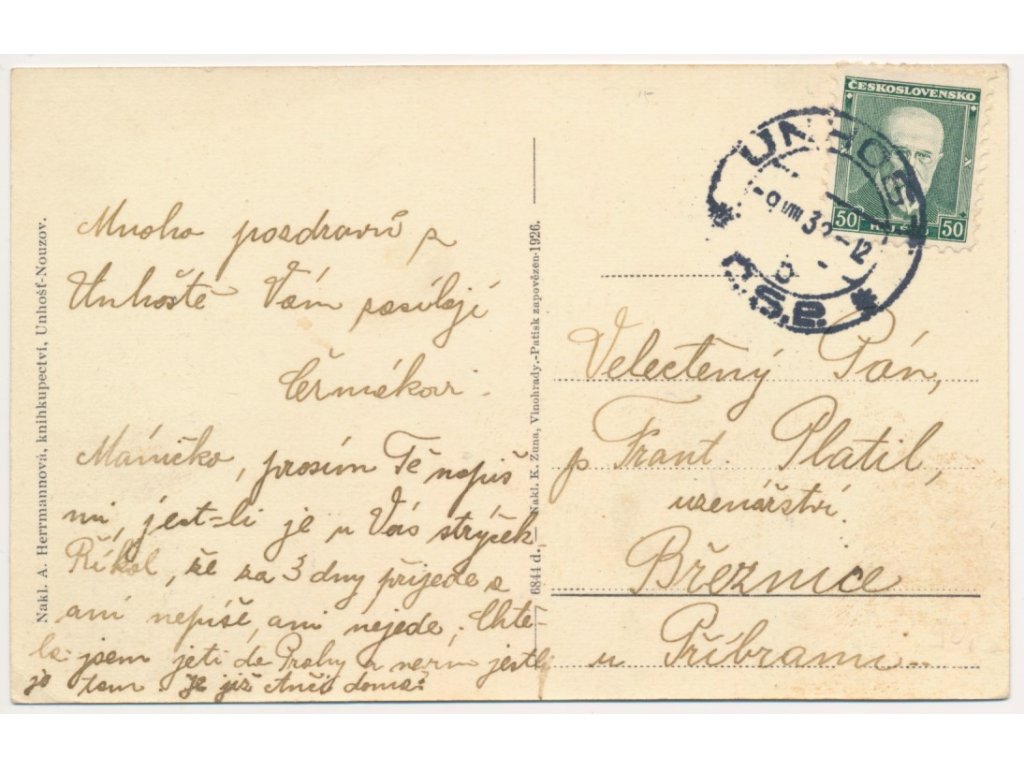 Mnoho pozdravů z
Unhoště Vám posílají
Čermákovi.
Máničko, prosím Tě napiš
mi, jest-li je u Vás strýček
Říkal, že za 3 dny přijede a
ani nepíše, ani nejede. Chtě-
la jsem jeti do Prahy a nevím jestli
je tam. Je již doma?
Nakl. A. Herrmannová, knihkupectví, Unhošť-Nouzov.
6844 d. — Nakl. K. Zuna, Vinohrady.-Patisk zapovězen-1926.
ČESKOSLOVENSKO
50 50
UNHOŠ
ČSR.
Velectěný Pán,
p Frant. Platil,
uzenářství.
Březnice
u Příbrami.